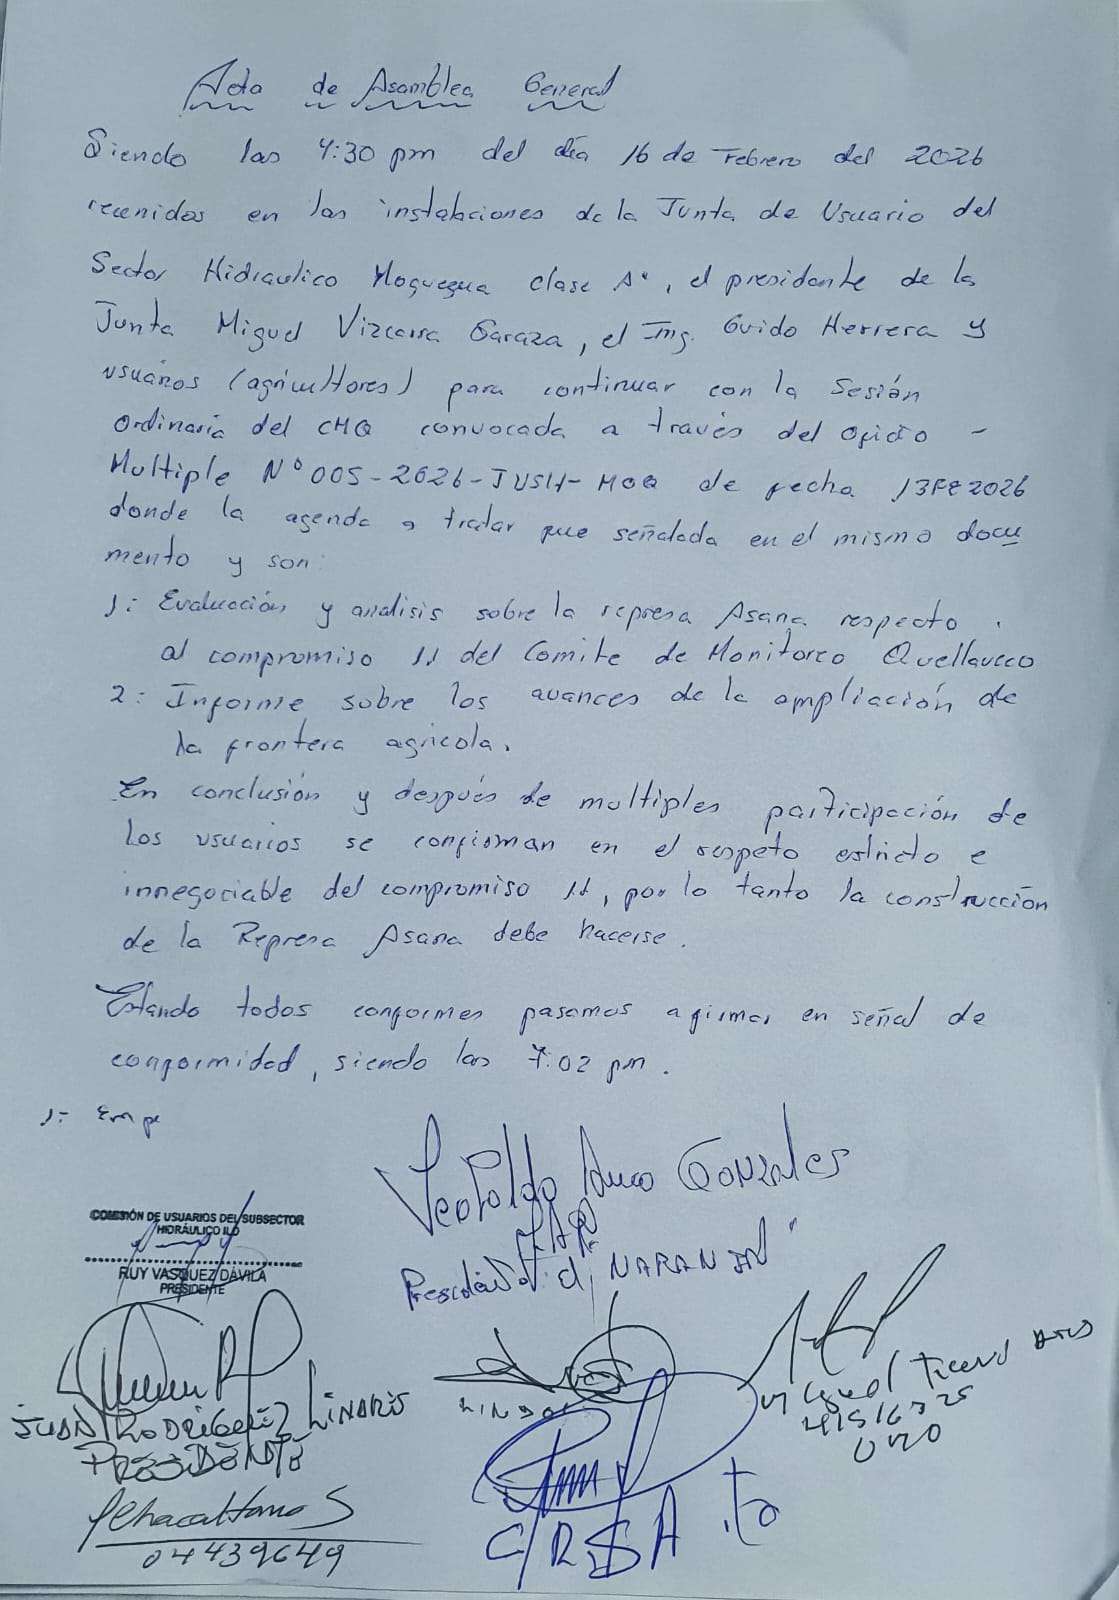 Acta de Asamblea General
Siendo las 4:30 pm del día 16 de Febrero del 2026
reunidos en las instalaciones de la Junta de Usuario del
Sector Hidraulico Moquegua clase A", el presidente de la
Junta Miguel Vizcarra Garaza, el Ing. Guido Herrera y
usuarios (agricultores) para continuar con la Sesión
Ordinaria del CMQ convocada a través del Oficio -
Multiple N° 005-2026-JUSH-MOQ de fecha 13FE2026
donde la agenda a tratar fue señalada en el mismo docu
mento y son:
1: Evaluación y analisis sobre la represa Asana respecto
al compromiso 11 del Comite de Monitoreo Quellaveco
2: Informe sobre los avances de la ampliación de
la frontera agricola.
En conclusión y después de multiples participación de
los usuarios se confirman en el respeto estricto e
innegociable del compromiso 11, por lo tanto la construcción
de la Represa Asana debe hacerse.
Estando todos conformes pasamos a firmar en señal de
conformidad, siendo las 7:02 pm.
1: Empe
Leopoldo Gonzales
Presidente NARANJAL"
COMISIÓN DE USUARIOS DEL SUBSECTOR
HIDRÁULICO ILO
RUY VASQUEZ DÁVILA
PRESIDENTE
JUAN RODRIGUEZ LINARES
PRESIDENTE
Miguel
04439649